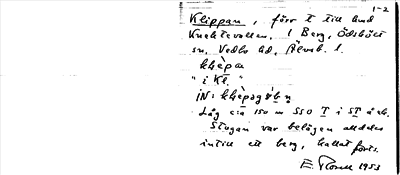 1-2
Klippan, förr T till And
Knektevallen, 1 Berg, Ödsköl
sn, Vedbo hd, Älvsb. l.
"i Kl."
IN:
Låg c:a 150 m SSO T i ST å ek.
Stugan var belägen alldeles
intill ett berg, kallat forts.
E. 1953